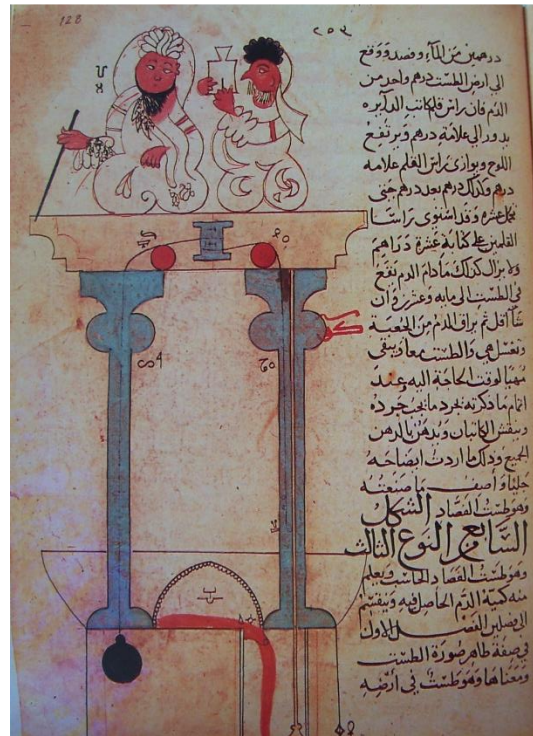 128
٢٥٣
درهمين من الماء وفصد ووقع
الى ارض الطست درهم واحد من
الدم فان راس قلم كاتب الدايره
يدور الى علامة درهم ويرتفع
اللوح ويوازى راس القلم علامه
درهم وكذلك درهم بعد درهم حتى
تكمل عشره وقد استوى راسا
القلمين على كتابة عشرة دراهم
ولا يزال كذلك ما دام الدم يقع
في الطست الى مايه وعشرين وان
شا اقل ثم يراق الدم من
وتغسل هي والطست معا ويبقى
مهيا لوقت الحاجة اليه وعند
اتمام ما ذكرته يجرد ما يجب جرده
وينقش الكاتبان ويدهن بالدهن
الجميع وذلك ما اردت ايضاحه
جليا واصف ما صنعته
وهو طست الفصاد الشكل
السابع من النوع الثالث
وهو طست الفصاد الحاسب ويعلم
منه كمية الدم الحاصل فيه وينقسم
الى فصلين الفصل الاول
في صفة ظاهر صورة الطست
ومعناها وهو طست في ارضه